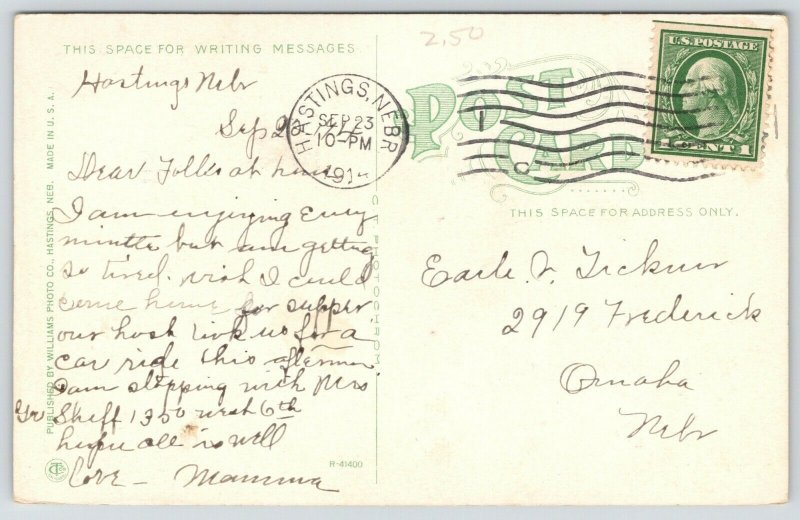 THIS SPACE FOR WRITING MESSAGES.
2.50
Hastings Nebr
Sep 2
Dear Folks at home
I am enjoying Every
minute but am getting
so tired. wish I could
come home for supper
our host took us for a
car ride this afternoon
I am stopping with Mrs
Skeff 1350 west 6th
hope all is well
Love - Mamma
HASTINGS, NEBR
SEP 23
10-PM
191
POST
CARD
1
C
U.S. POSTAGE
1 CENT 1
THIS SPACE FOR ADDRESS ONLY.
Earle V. Ticknor
2919 Frederick
Omaha
Nebr
PUBLISHED BY WILLIAMS PHOTO CO., HASTINGS, NEB. MADE IN U.S.A.
R-41400